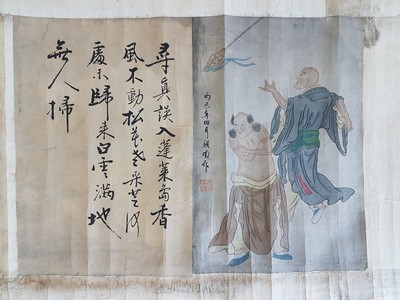 尋真誤入蓬萊島香
風不動松花老采芝何
處未歸來白雲滿地
無人掃
年四月作